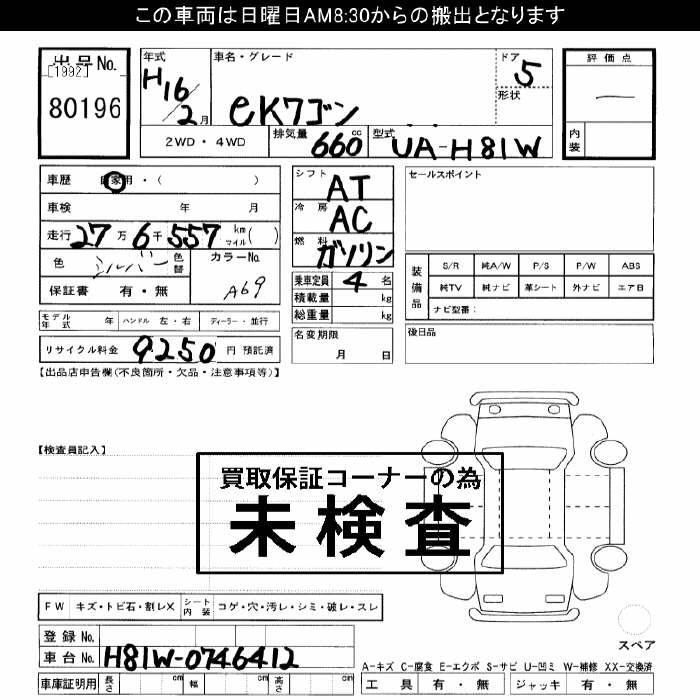 この車両は日曜日AM8:30からの搬出となります
出品No.
[1992]
80196
年式 H16/2月
車名・グレード
eKワゴン
ドア 5
形状
評価点
内装
2WD・4WD
排気量 660 cc
型式 UA-H81W
車歴 自家用・( )
車検 年 月
走行 27万6千557 km マイル( )
色 シルバー 色替
カラーNo. A69
保証書 有・無
シフト AT
冷房 AC
燃料 ガソリン
乗車定員 4 名
積載量 kg
総重量 kg
名変期限
月 日
セールスポイント
装備品
S/R 純A/W P/S P/W ABS
純TV 純ナビ 革シート 外ナビ エアB
ナビ型番:
後日品
モデル年式 年 ハンドル 左・右 ディーラー・並行
リサイクル料金 9250 円 預託済
【出品店申告欄(不良箇所・欠品・注意事項等)】
【検査員記入】
買取保証コーナーの為
未検査
FW キズ・トビ石・割レX シート内装 コゲ・穴・汚レ・シミ・破レ・スレ
登録No.
車台No. H81W-0746412
車庫証明用 長さ cm 幅 cm 高さ cm
スペア
A-キズ C-腐食 E-エクボ S-サビ U-凹ミ W-補修 XX-交換済
工具 有・無 ジャッキ 有・無